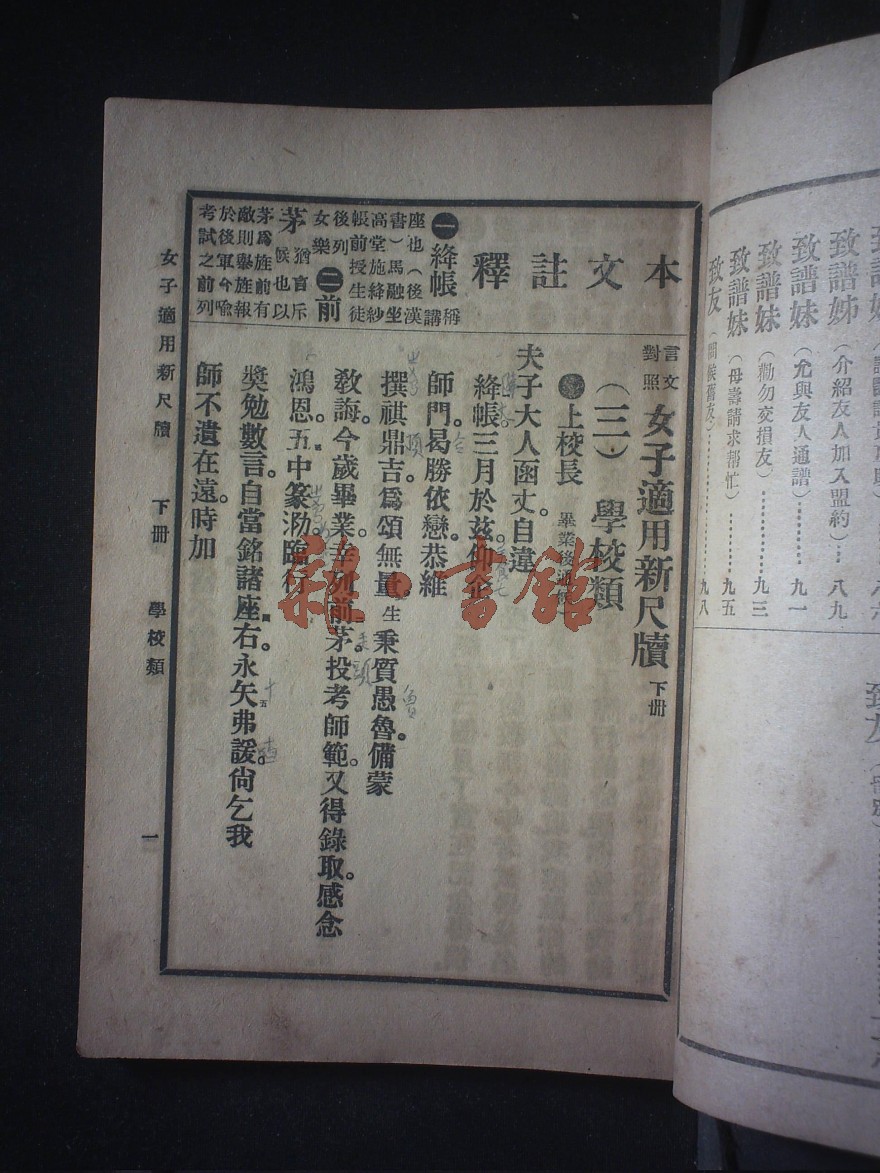 致譜姊（介紹友人加入盟約）…八九
致譜妹（允與友人通譜）………九一
致譜妹（勸勿交損友）…………九三
致譜妹（母壽請求帮忙）………九五
致友（問候舊友）………………九八
本文註釋
㊀絳帳 講稱
座也（後漢
書）馬融坐
高堂施絳紗
帳前授生徒
後列
女樂
㊁前
茅 猶言斥
候也以
茅爲旌前有
敵則舉旌報
於後軍今喻
考試之前列
言文
對照
女子適用新尺牘 下冊
（三）學校類
上校長
夫子大人函丈。自違
絳帳三月於茲仰企
師門。曷勝依戀恭維
撰祺鼎吉爲頌無量。生秉質愚魯。備蒙
敎誨。今歲畢業。幸列前茅。投考師範。又得錄取。感念
鴻恩。五中篆泐。臨行
獎勉數言。自當銘諸座右。永矢弗諼。尙乞我
師不遺在遠。時加
女子適用新尺牘 下冊 學校類 一
雜·書館